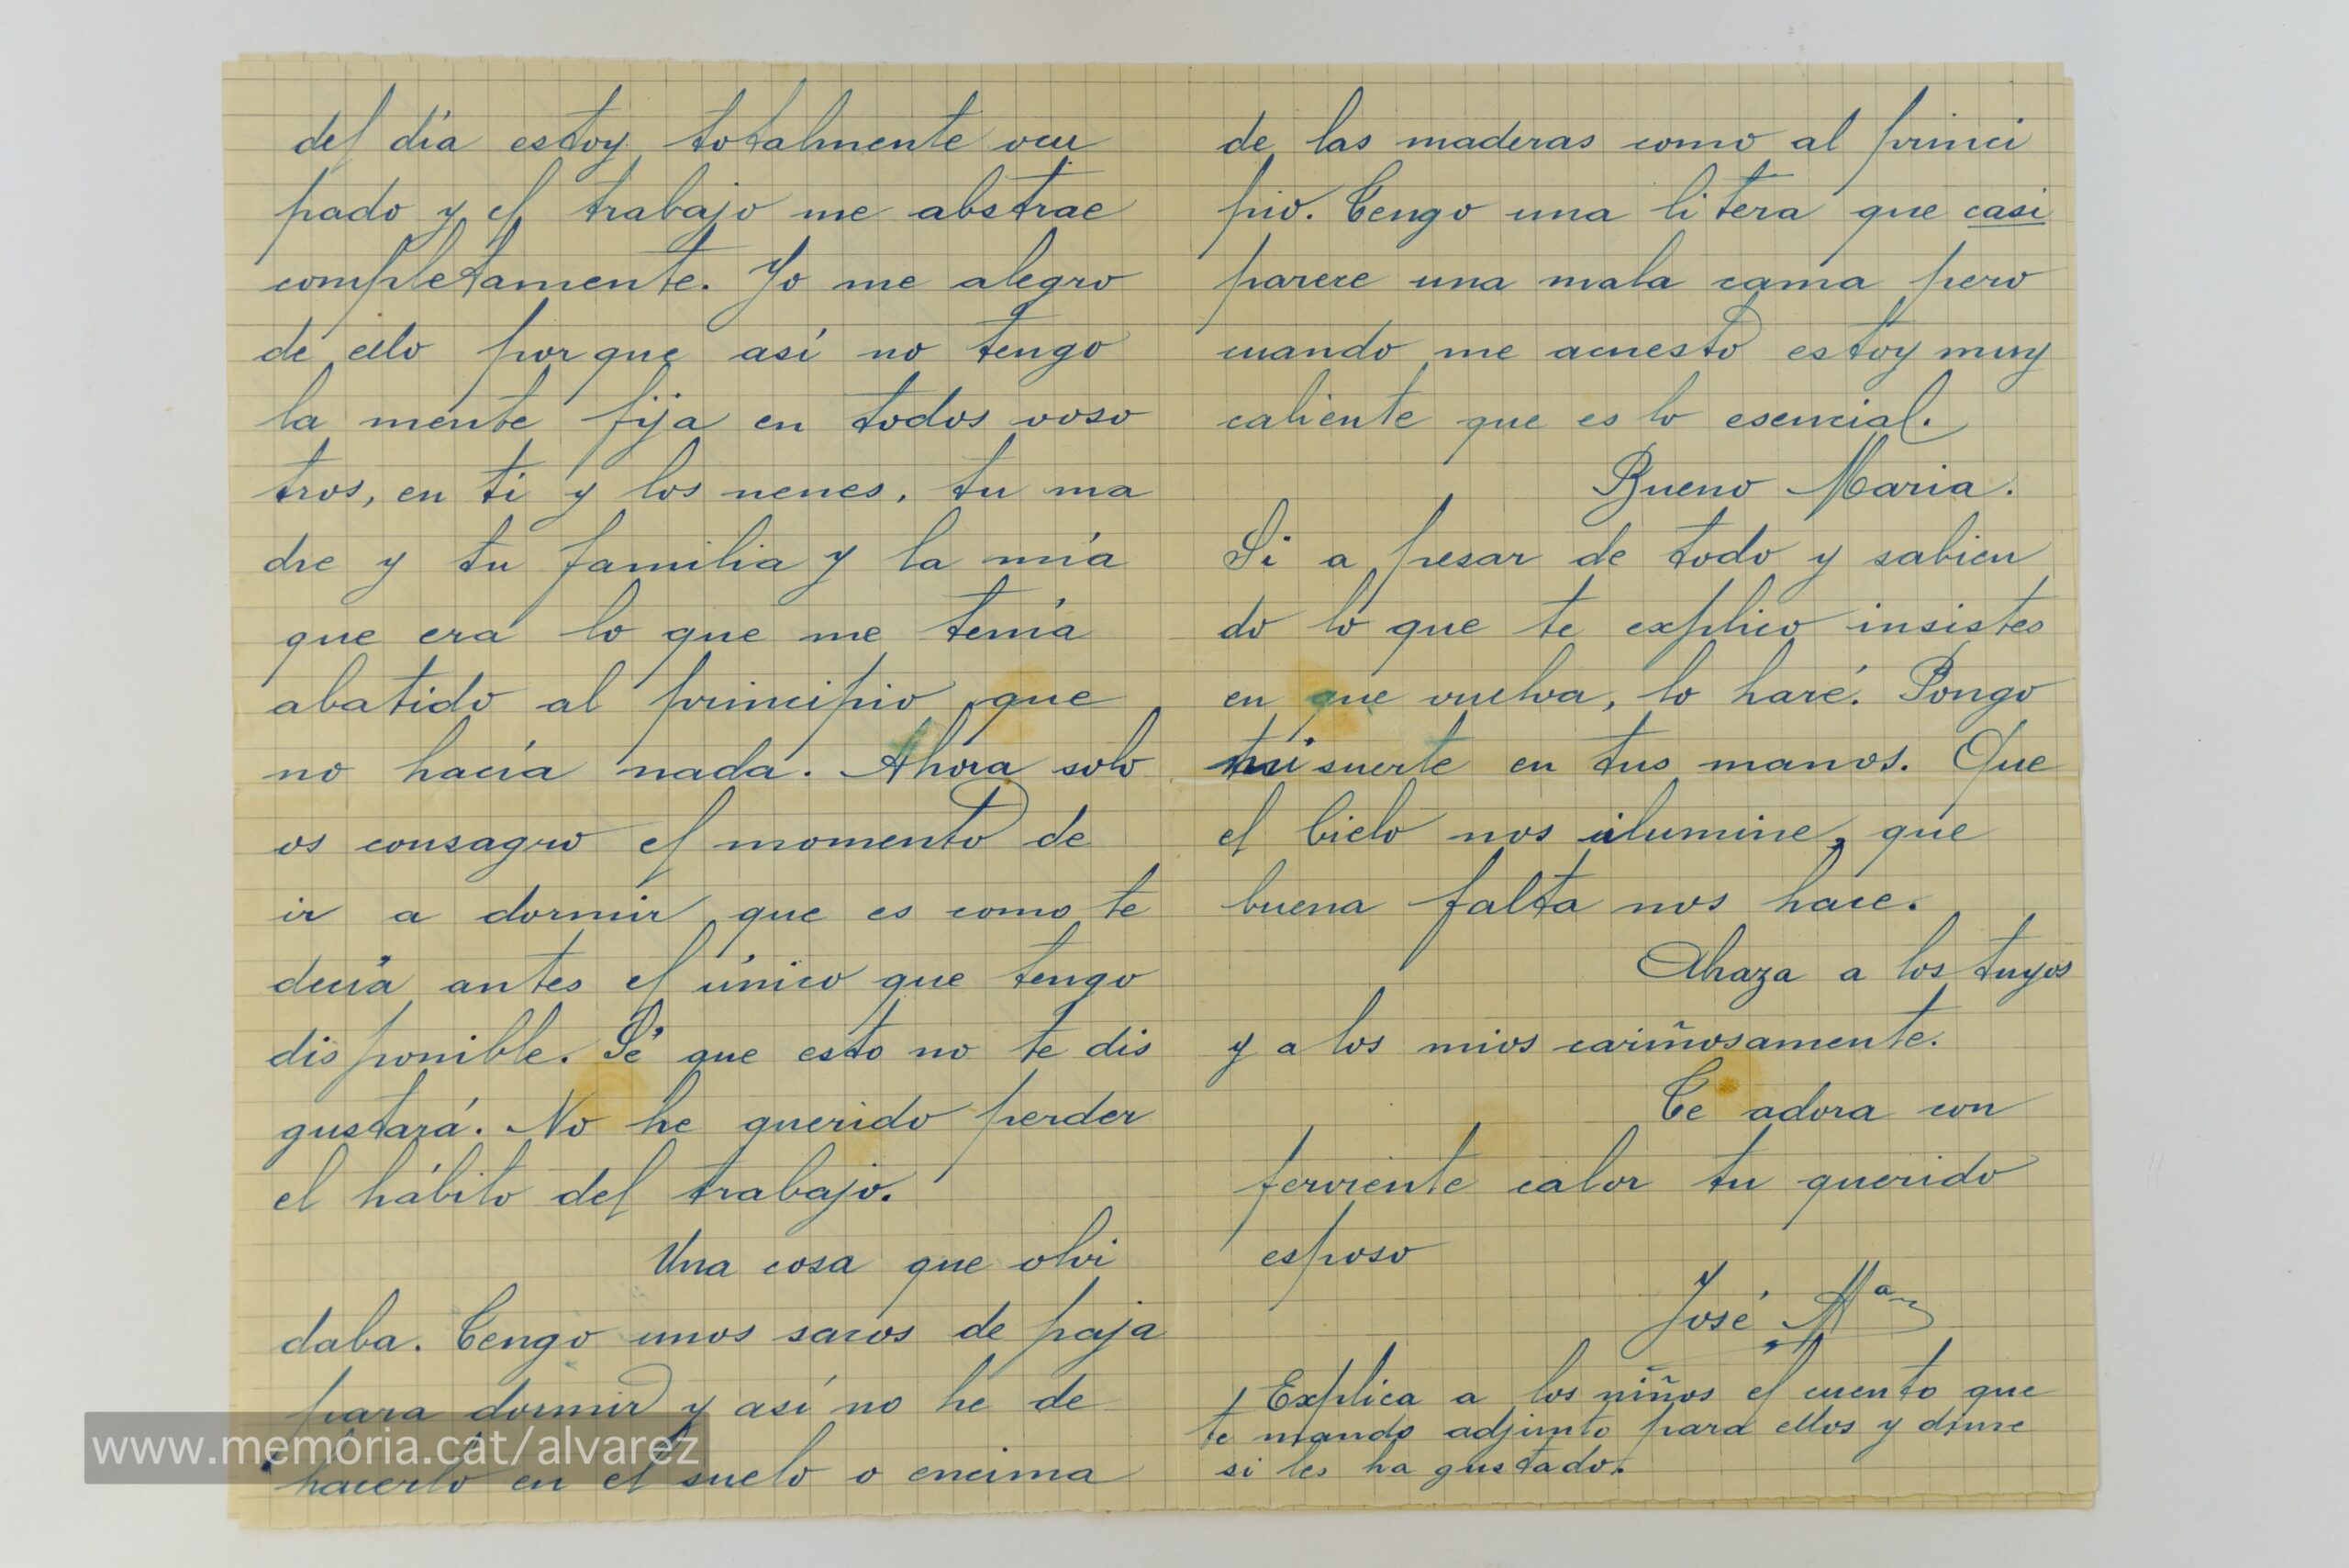 del día estoy totalmente ocu
pado y el trabajo me abstrae
completamente. Yo me alegro
de ello porque así no tengo
la mente fija en todos voso
tros, en ti y los nenes, tu ma
dre y tu familia y la mía
que era lo que me tenía
abatido al principio que
no hacía nada. Ahora solo
os consagro el momento de
ir a dormir que es como te
decía antes el único que tengo
disponible. Sé que esto no te dis
gustará. No he querido perder
el hábito del trabajo.
Una cosa que olvi
daba. Tengo unos sacos de paja
para dormir y así no he de
hacerlo en el suelo o encima
de las maderas como al princi
pio. Tengo una litera que casi
parece una mala cama pero
cuando me acuesto estoy muy
caliente que es lo esencial.
Bueno Maria.
Si a pesar de todo y sabien
do lo que te explico insistes
en que vuelva, lo haré. Pongo
mi suerte en tus manos. Que
el Cielo nos ilumine, que
buena falta nos hace.
Abraza a los tuyos
y a los mios cariñosamente.
Te adora con
ferviente calor tu querido
esposo
José Mª
Explica a los niños el cuento que
te mando adjunto para ellos y dime
si les ha gustado.
www.memoria.cat/alvarez